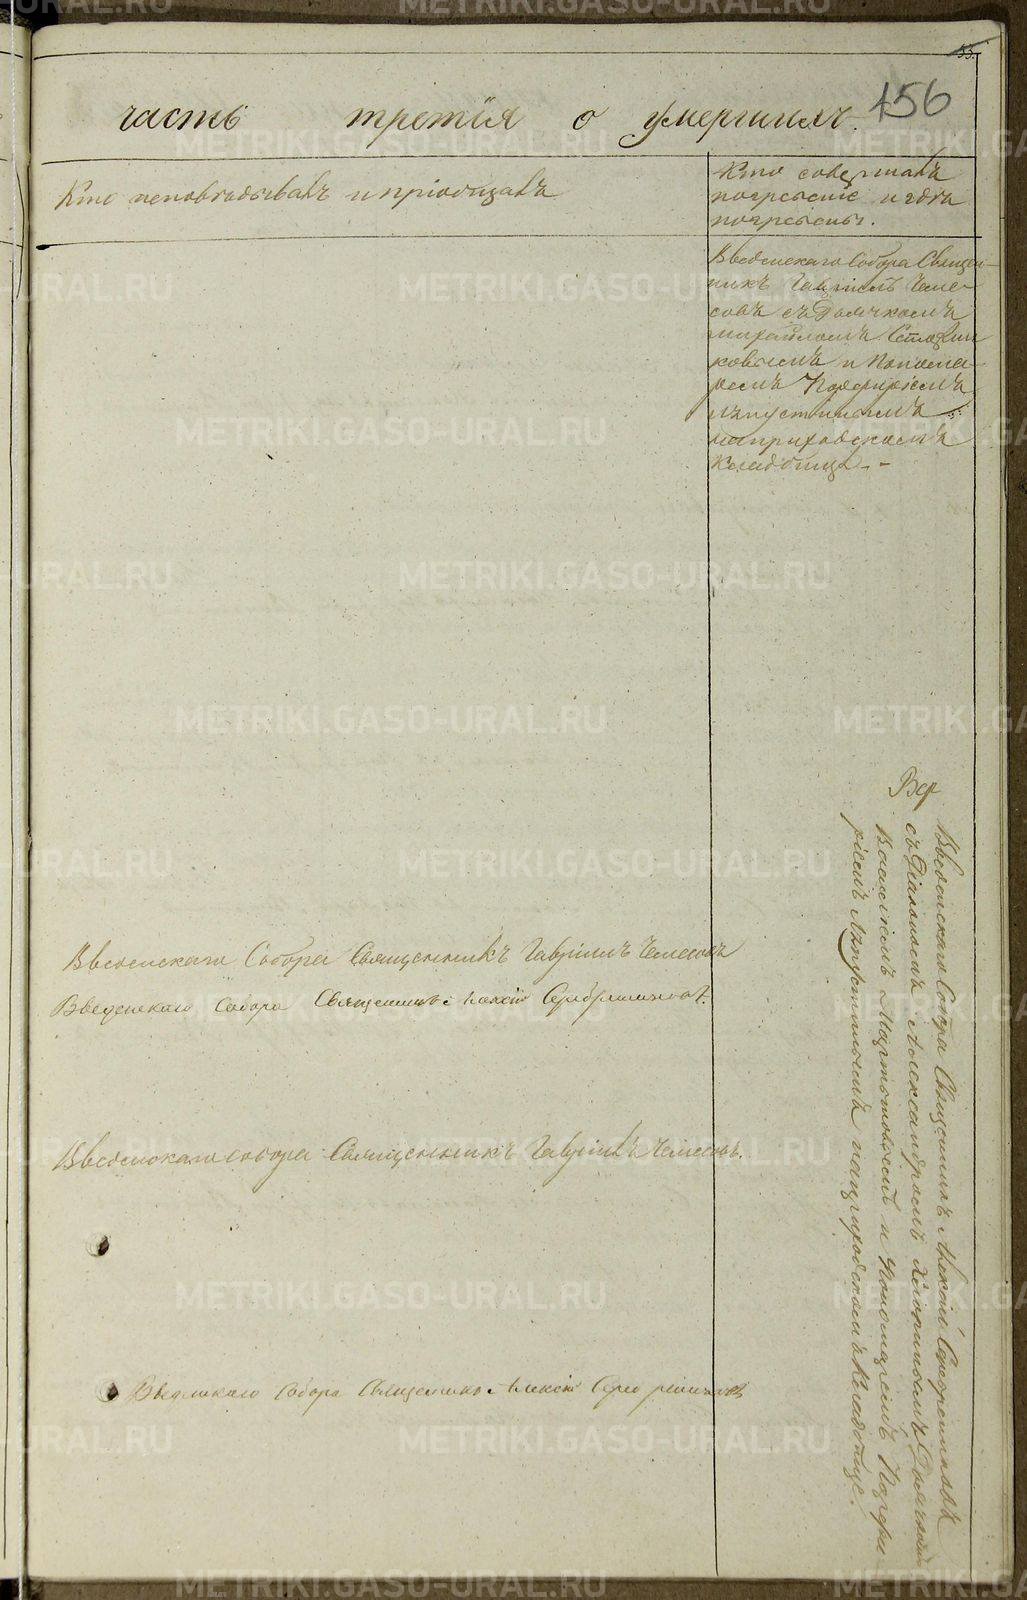 53.
156
часть третїя о умершихъ.
Кто исповѣдывалъ и прїобщалъ
Кто совершалъ
погребенїе и гдѣ
погребены.
Введенскаго Собора Священ-
никъ Гаврїилъ Чеме-
совъ съ Дьячкомъ
Михайломъ
и Понома-
ремъ Порфирїемъ
на приходскомъ
кладбищѣ. -
Введенскаго Собора Священникъ Гаврїилъ Чемесовъ
Введенскаго Собора Священникъ Алексїй Серебренниковъ.
Введенскаго собора Священникъ Гаврїилъ Чемесовъ.
Введенскаго Собора Священникъ Алексїй Серебренниковъ
Введенскаго Собора Священникъ Алексїй Серебренниковъ
съ Дїакономъ Александромъ Дьячкомъ
и Пономаремъ Порфи-
рїемъ на приходскомъ кладбище.
METRIKI.GASO-URAL.RU